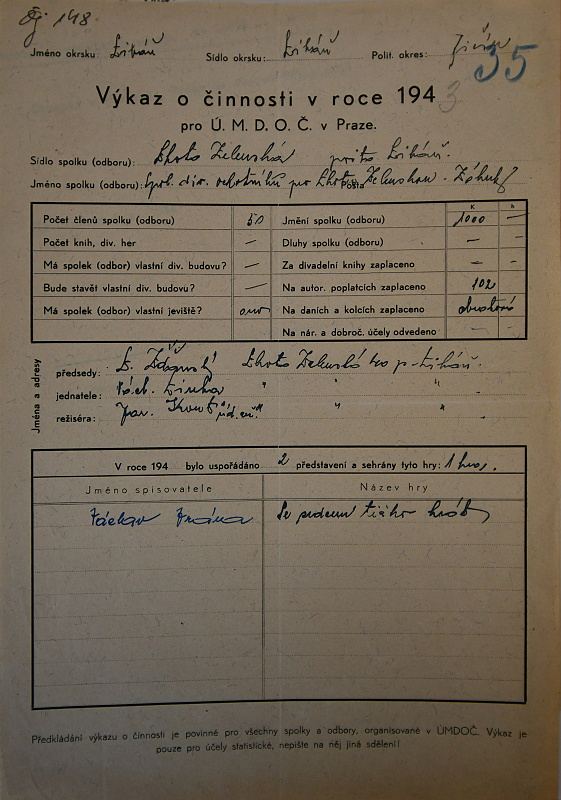 Čj 148.
Jméno okrsku: Libáň Sídlo okrsku: Libáň Polit. okres: Jičín
35
Výkaz o činnosti v roce 1943
pro Ú. M. D. O. Č. v Praze.
Sídlo spolku (odboru): Lhota Zelenská
Jméno spolku (odboru): Spol. div. ochotníků pro Lhotu Zelenskou - Záhuby
Pošta
K h
Počet členů spolku (odboru) 50 Jmění spolku (odboru) 1000 —
Počet knih, div. her — Dluhy spolku (odboru) — -
Má spolek (odbor) vlastní div. budovu? — Za divadelní knihy zaplaceno — -
Bude stavět vlastní div. budovu? — Na autor. poplatcích zaplaceno 102
Má spolek (odbor) vlastní jeviště? ano Na daních a kolcích zaplaceno
Na nár. a dobroč. účely odvedeno - -
Jména a adresy
předsedy: Lhota Zelenská p. Libáň.
jednatele: Václ. " " "
režiséra: Jar. " "
V roce 194 bylo uspořádáno 2 představení a sehrány tyto hry: 1 hra.
Jméno spisovatele Název hry
Václav Se srdcem těžko hráti
Předkládání výkazu o činnosti je povinné pro všechny spolky a odbory, organisované v ÚMDOČ. Výkaz je
pouze pro účely statistické, nepište na něj jiná sdělení!